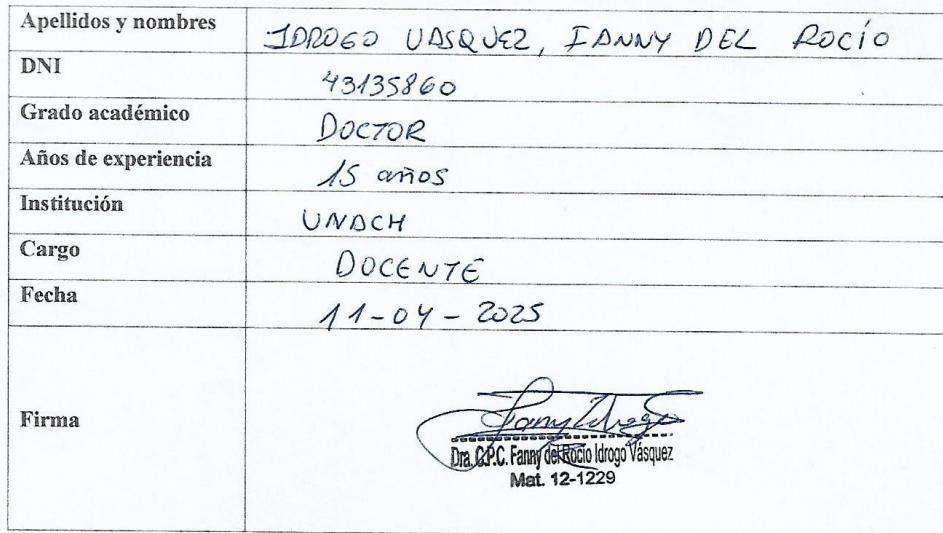 Apellidos y nombres IDROGO VASQUEZ, FANNY DEL ROCÍO
DNI 43135860
Grado académico DOCTOR
Años de experiencia 15 años
Institución UNACH
Cargo DOCENTE
Fecha 11-04-2025
Firma Fanny Idrogo
Dra. C.P.C. Fanny del Rocio Idrogo Vásquez
Mat. 12-1229